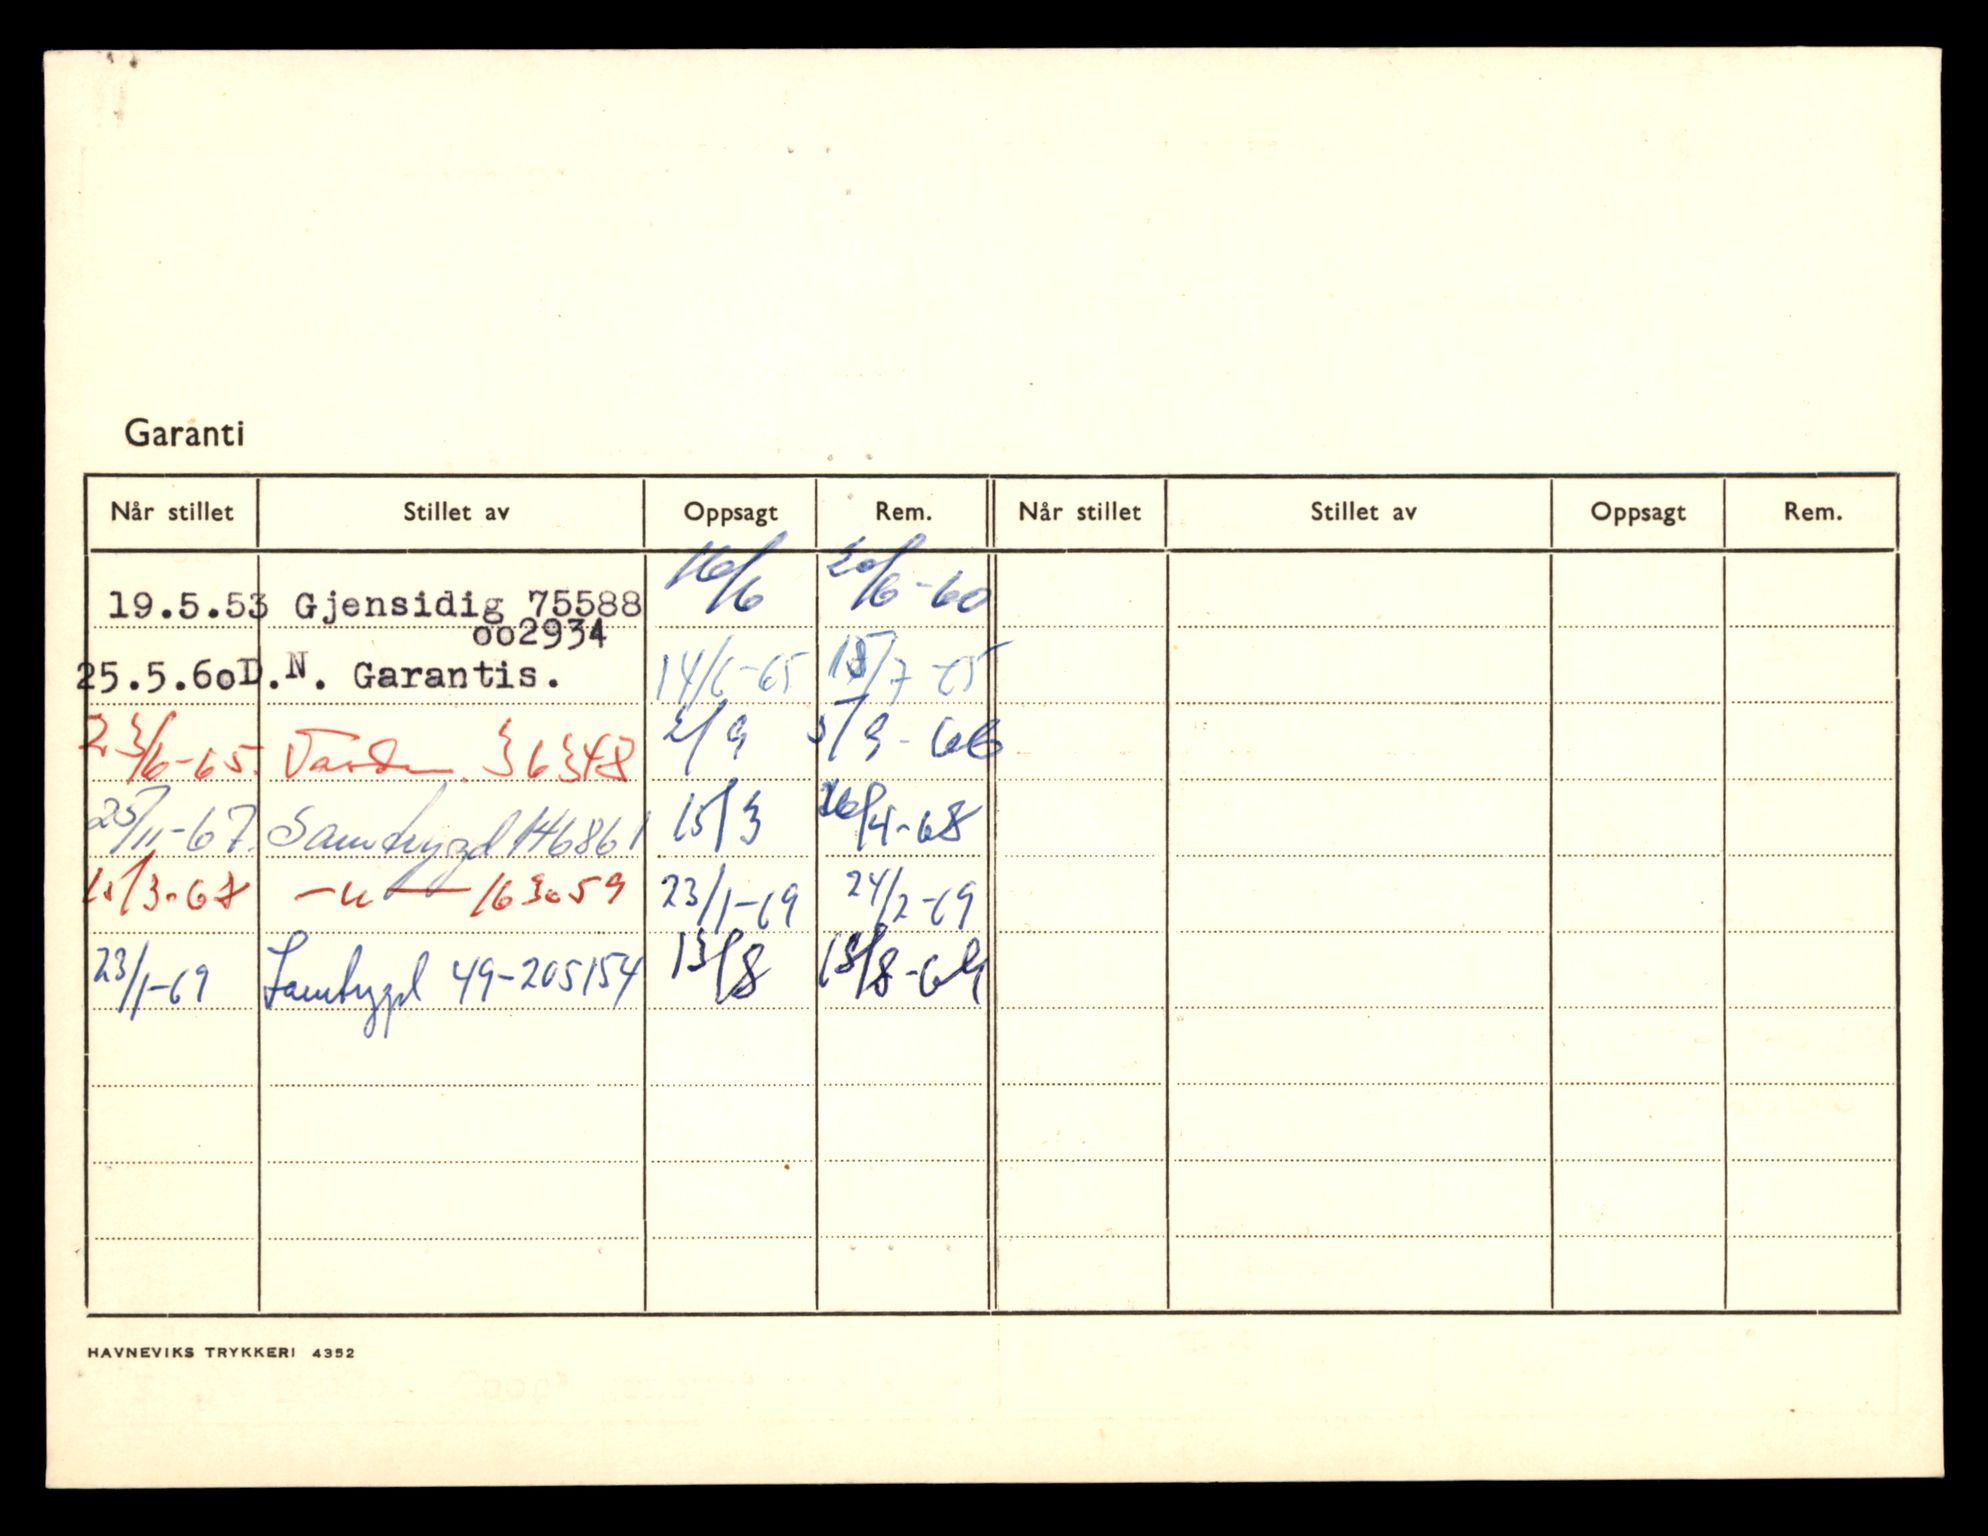 Garanti
Når stillet Stillet av Oppsagt Rem. Når stillet Stillet av Oppsagt Rem.
19.5.53 Gjensidig 75588 16/6 20/6-60
002934
25.5.60 D.N. Garantis. 14/6-65 15/7-65
23/6-65. 36348 2/9 5/9-66
25/11-67. Sambygd 146861 15/3 26/4-68
15/3-68 -"- 163059 23/1-69 24/2-69
23/1-69 Sambygd 49-205154 13/8 18/8-69
HAVNEVIKS TRYKKERI 4352